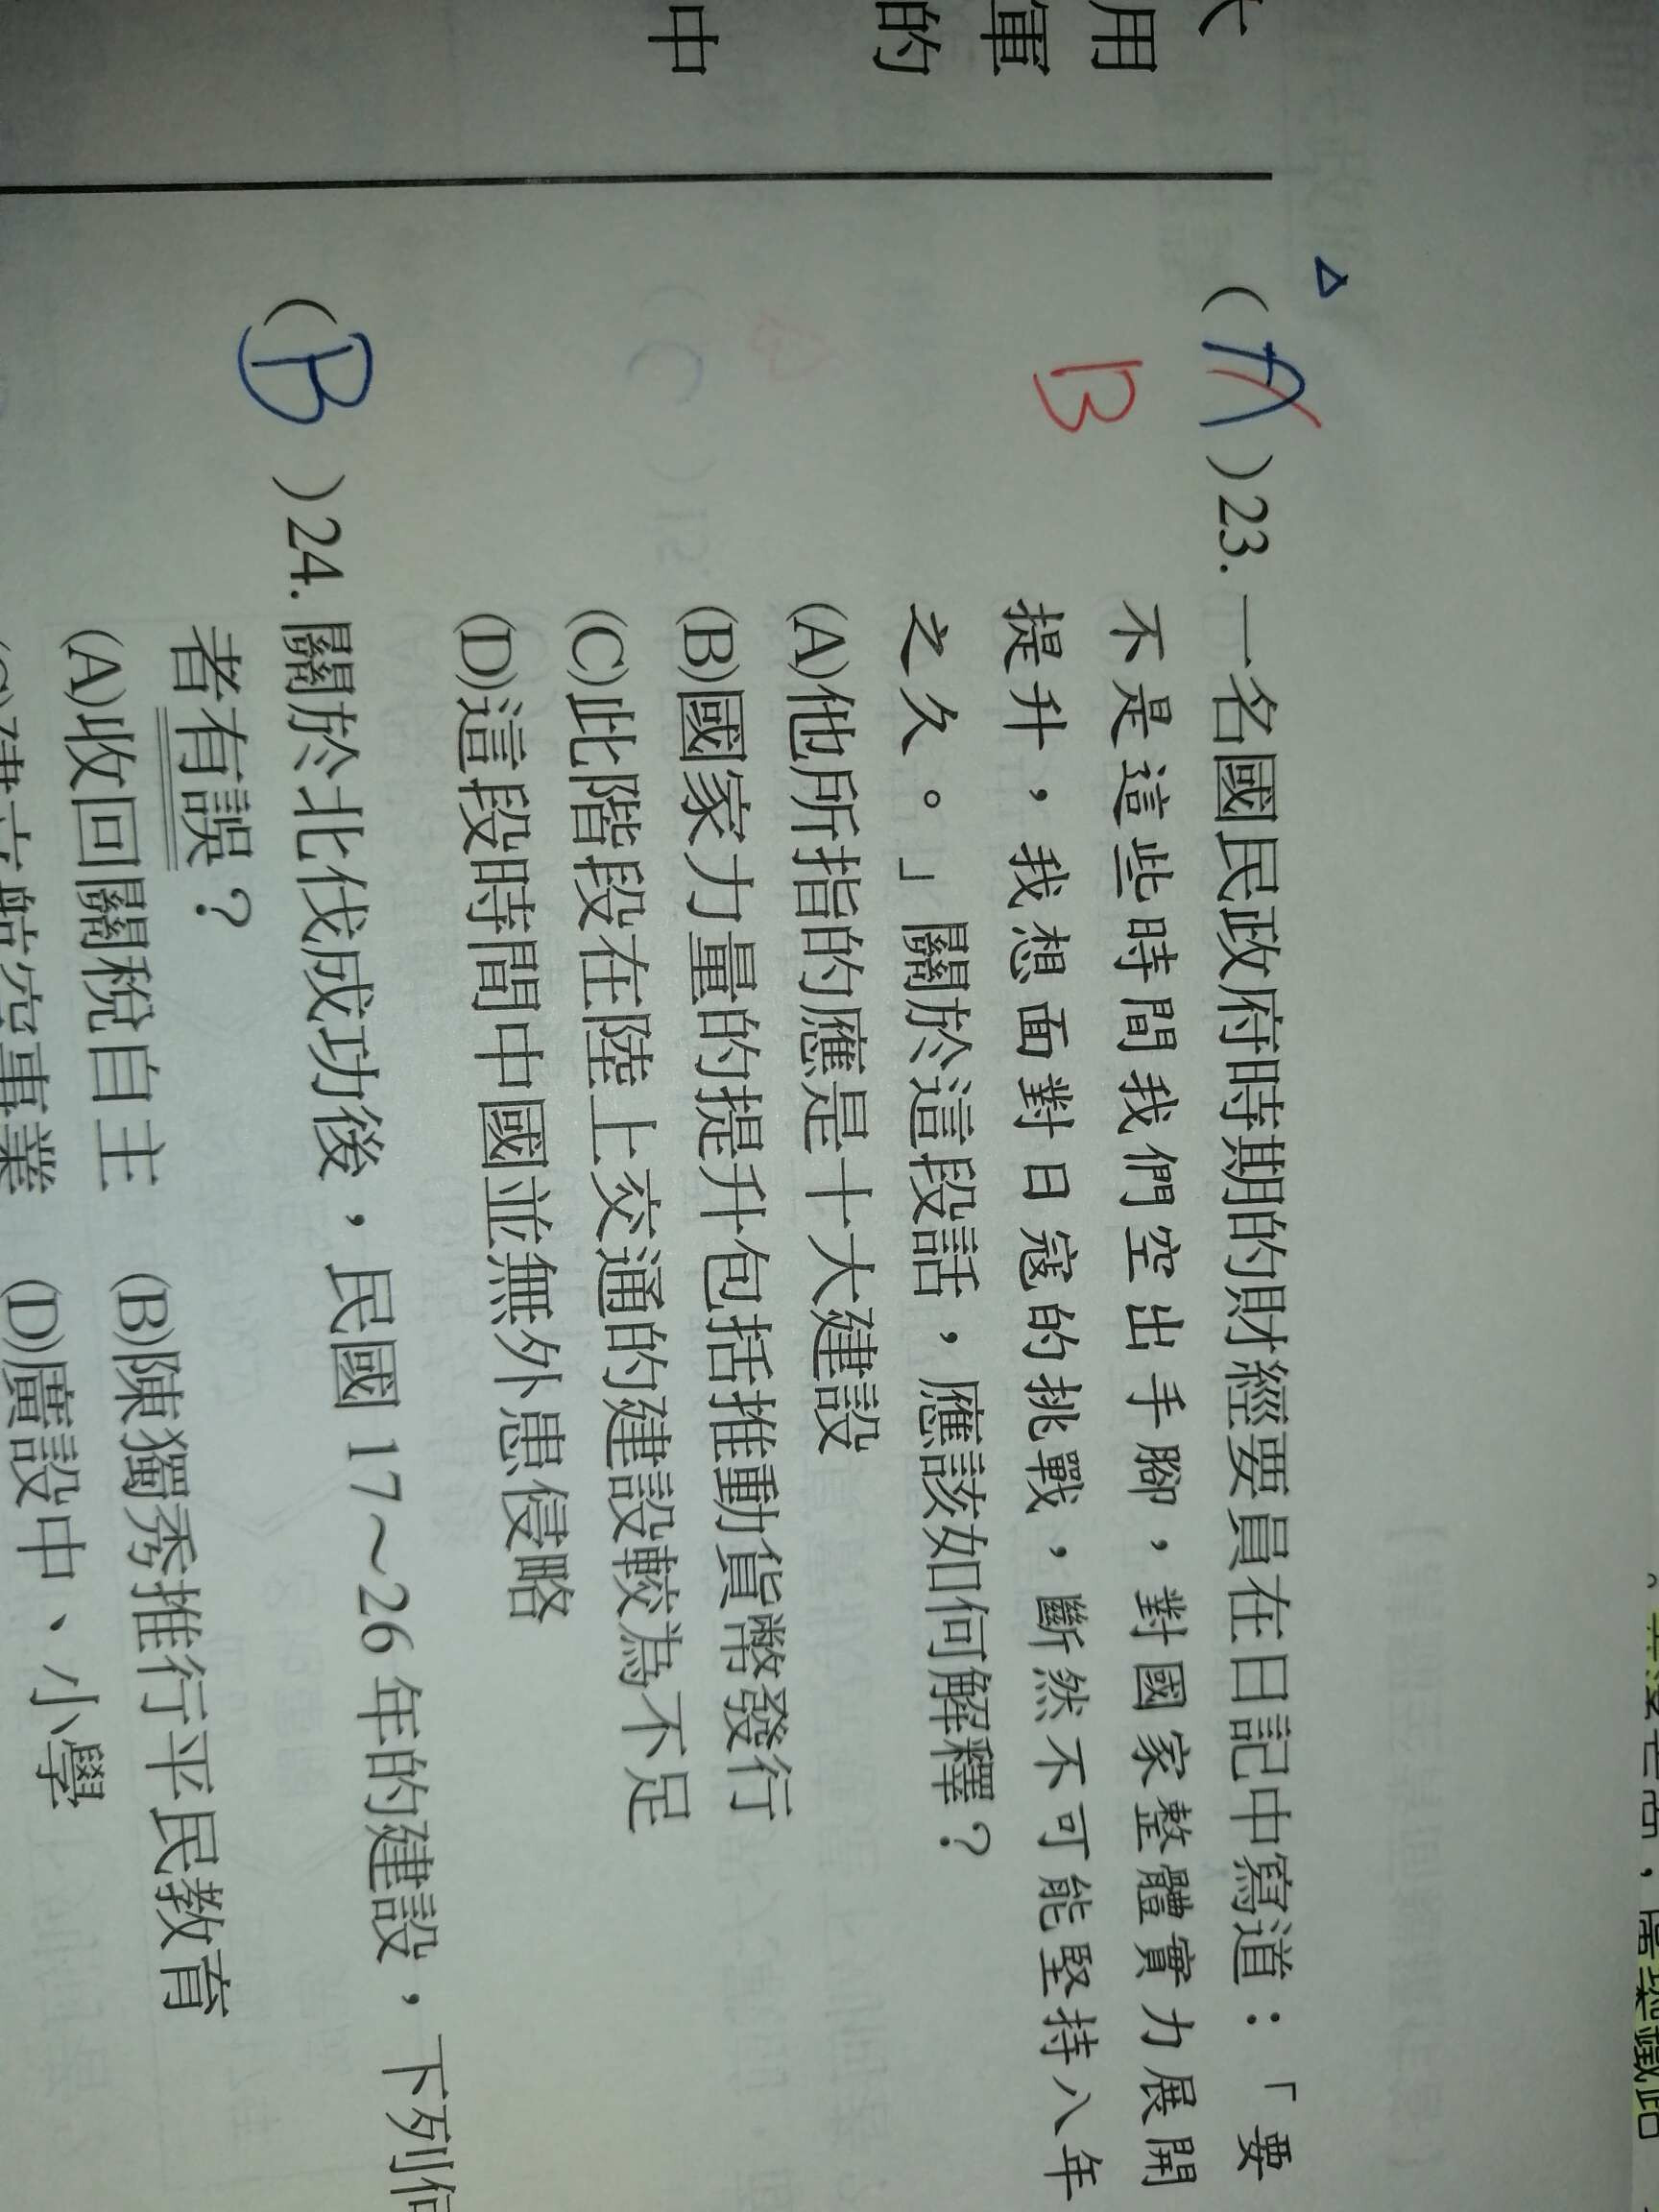 用
軍
的
中
△
(A)23.一名國民政府時期的財經要員在日記中寫道：「要
不是這些時間我們空出手腳，對國家整體實力展開
B
提升，我想面對日寇的挑戰，斷然不可能堅持八年
之久。」關於這段話，應該如何解釋？
(A)他所指的應是十大建設
(B)國家力量的提升包括推動貨幣發行
(C)此階段在陸上交通的建設較為不足
(D)這段時間中國並無外患侵略
(B)24.關於北伐成功後，民國17～26年的建設，下列何
者有誤？
(A)收回關稅自主 (B)陳獨秀推行平民教育
(C)建立航空事業 (D)廣設中、小學